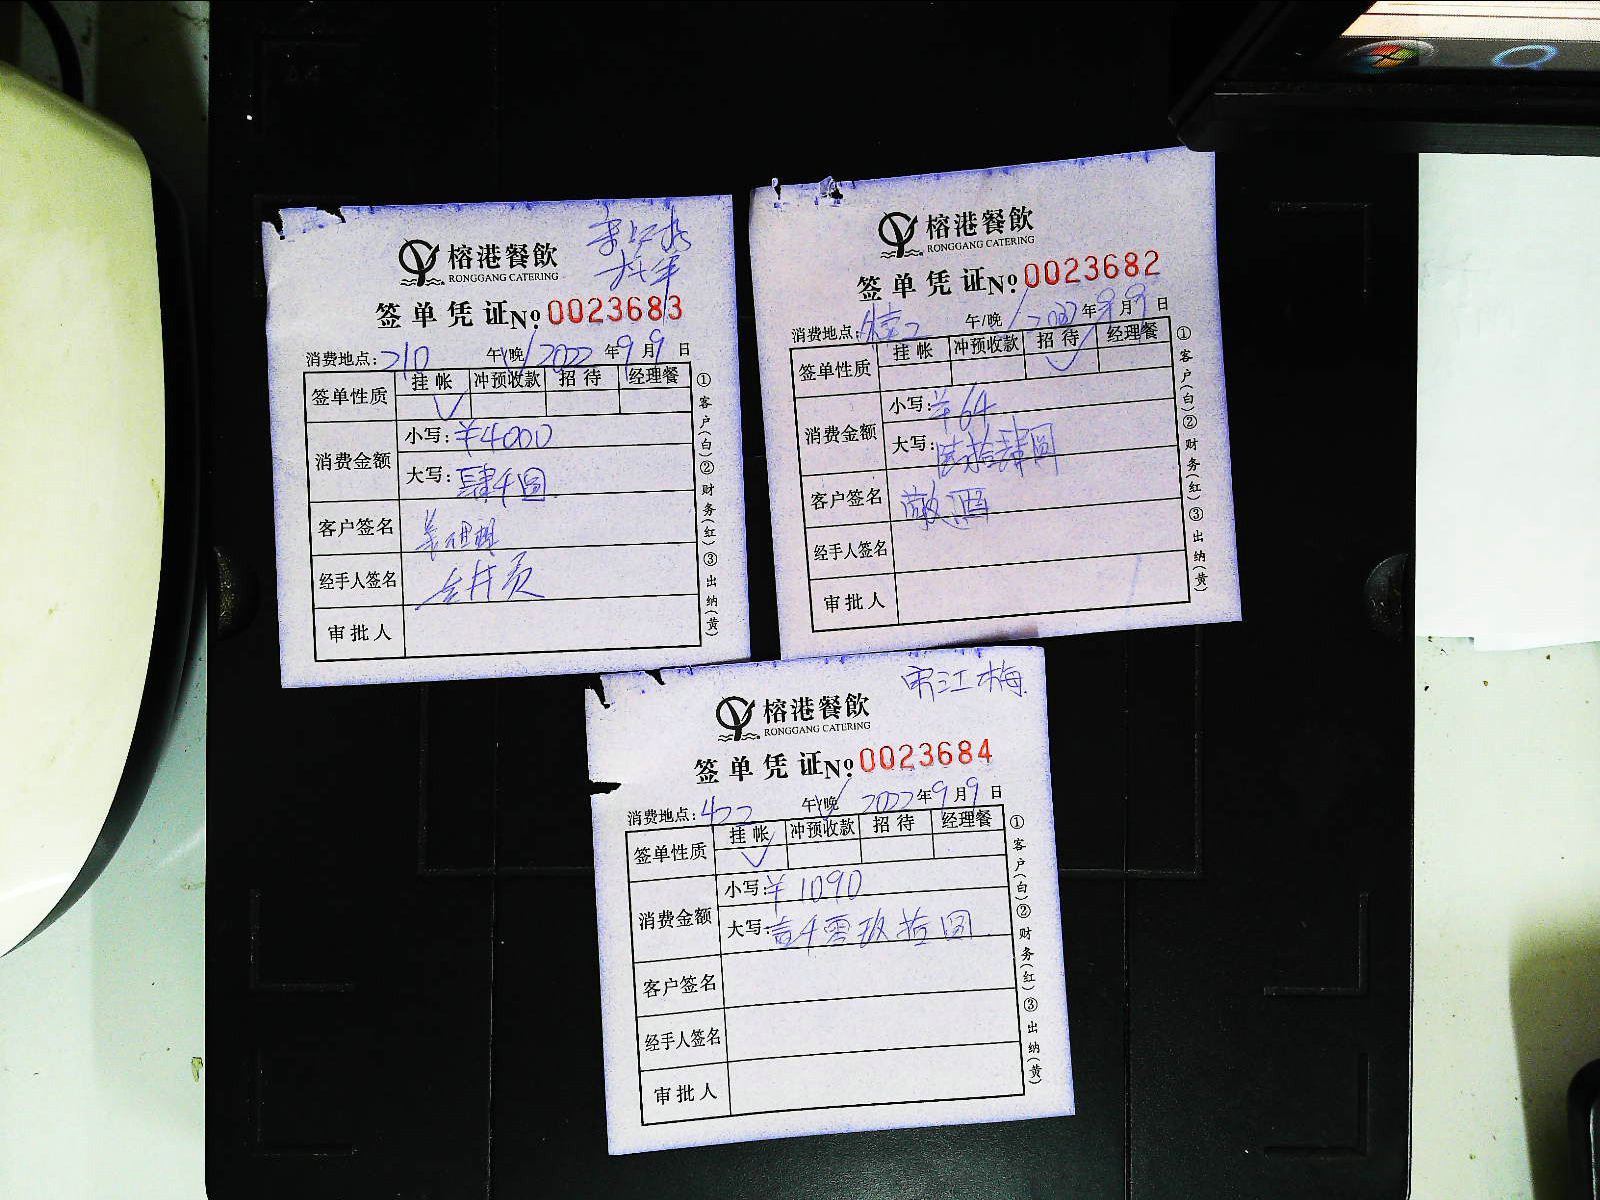 榕港餐飲
RONGGANG CATERING
签单凭证 №0023683
消费地点: 210 午/晚 2022年9月9日
签单性质 挂帐 冲预收款 招待 经理餐
消费金额
小写: ¥4000
大写: 肆千圆
客户签名
经手人签名
审批人
①客户(白)②财务(红)③出纳(黄)
榕港餐飲
RONGGANG CATERING
签单凭证 №0023682
消费地点: 午/晚 2022年9月9日
签单性质 挂帐 冲预收款 招待 经理餐
消费金额
小写: ¥64
大写: 陆拾肆圆
客户签名 敬酒
经手人签名
审批人
①客户(白)②财务(红)③出纳(黄)
宋江梅
榕港餐飲
RONGGANG CATERING
签单凭证 №0023684
消费地点: 422 午/晚 2022年9月9日
签单性质 挂帐 冲预收款 招待 经理餐
消费金额
小写: ¥1090
大写: 壹千零玖拾圆
客户签名
经手人签名
审批人
①客户(白)②财务(红)③出纳(黄)